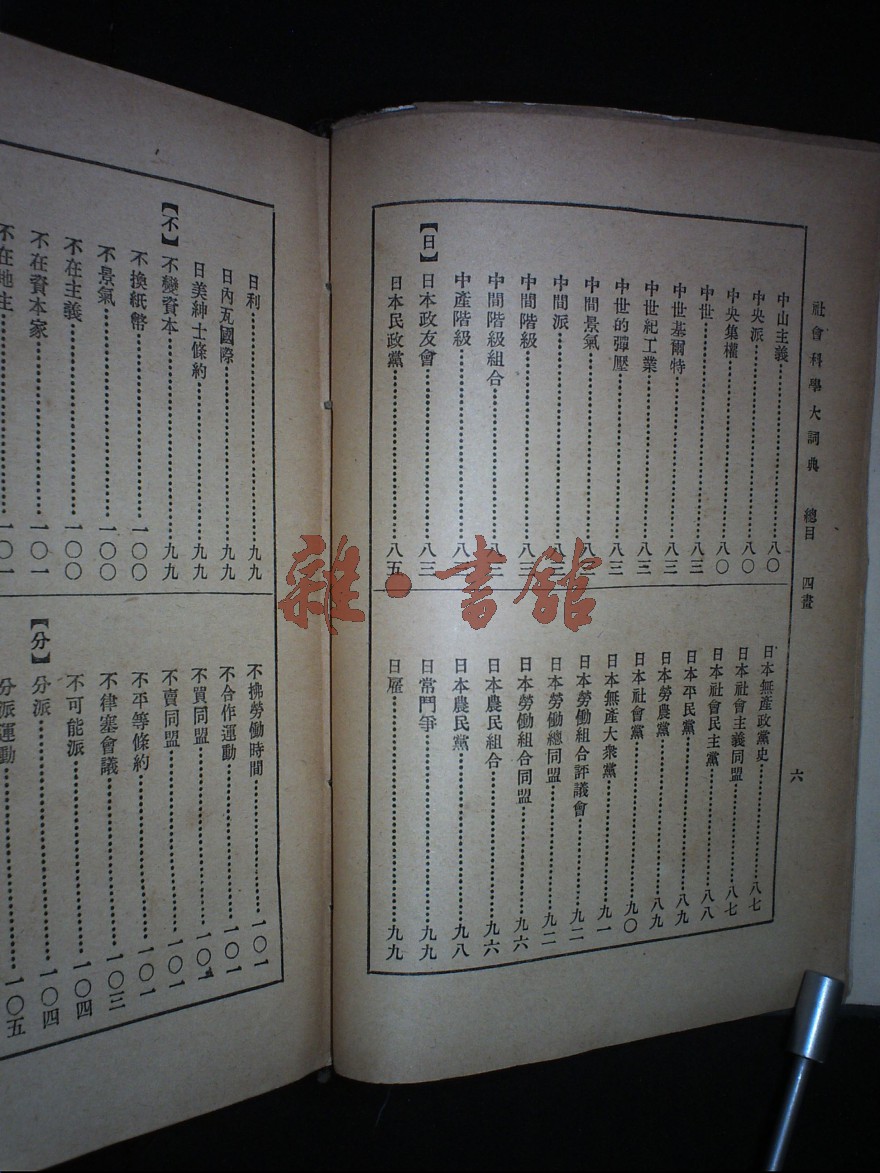 社會科學大詞典 總目 四畫 六
中山主義 八〇
中央派 八〇
中央集權 八〇
中世 八三
中世基爾特 八三
中世紀工業 八三
中世的彈壓 八三
中間景氣
中間派
中間階級 八三
中間階級組合 八三
中產階級 八三
【日】日本政友會 八三
日本民政黨 八五
日本無產政黨史 八七
日本社會主義同盟 八七
日本社會民主黨 八八
日本平民黨 八九
日本勞農黨 八九
日本社會黨 九〇
日本無產大衆黨 九一
日本勞働組合評議會 九二
日本勞働總同盟 九二
日本勞働組合同盟 九六
日本農民組合 九六
日本農民黨 九八
日常鬥爭 九九
日雇 九九
日利 九九
日內瓦國際 九九
日美紳士條約 九九
【不】不變資本 九九
不換紙幣 一〇〇
不景氣 一〇〇
不在主義 一〇〇
不在資本家 一〇一
不在地主 一〇一
不拂勞働時間 一〇一
不合作運動 一〇一
不買同盟 一〇一
不賣同盟 一〇一
不平等條約 一〇一
不律塞會議 一〇三
不可能派 一〇四
【分】分派 一〇四
分派運動 一〇五
雜·書館